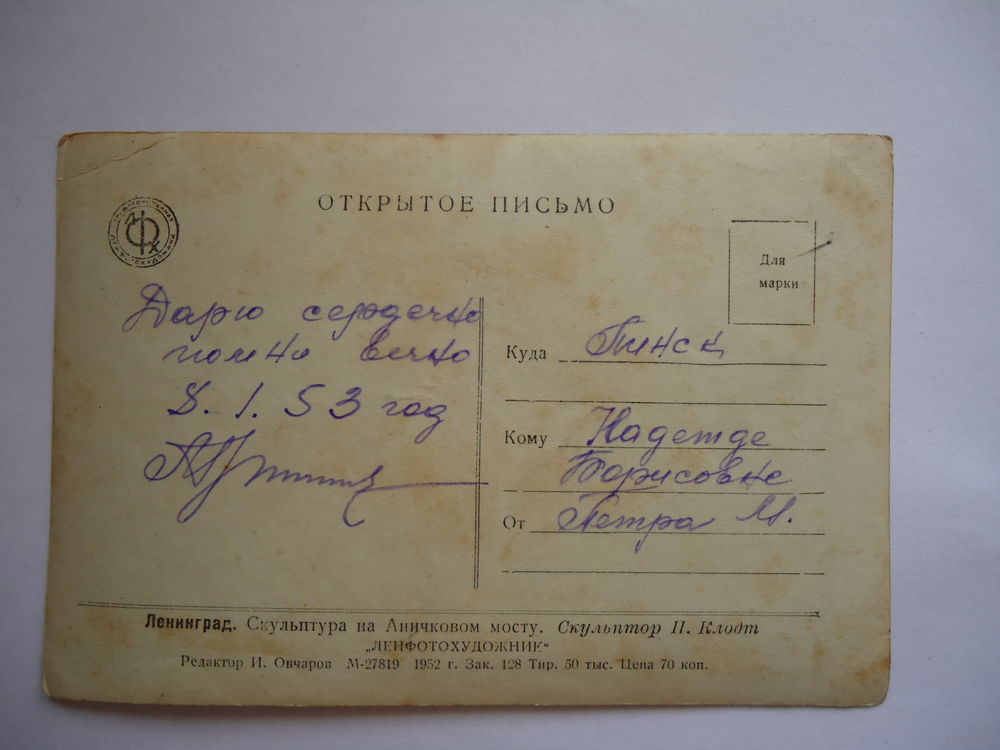 ОТКРЫТОЕ ПИСЬМО
Для
марки
Дарю сердечно
помни вечно
8. 1. 53 год
Куда Пинск
Кому Надежде
Борисовне
От Петра М.
Ленинград. Скульптура на Аничковом мосту. Скульптор П. Клодт
„ЛЕНФОТОХУДОЖНИК“
Редактор И. Овчаров М-27819 1952 г. Зак. 128 Тир. 50 тыс. Цена 70 коп.